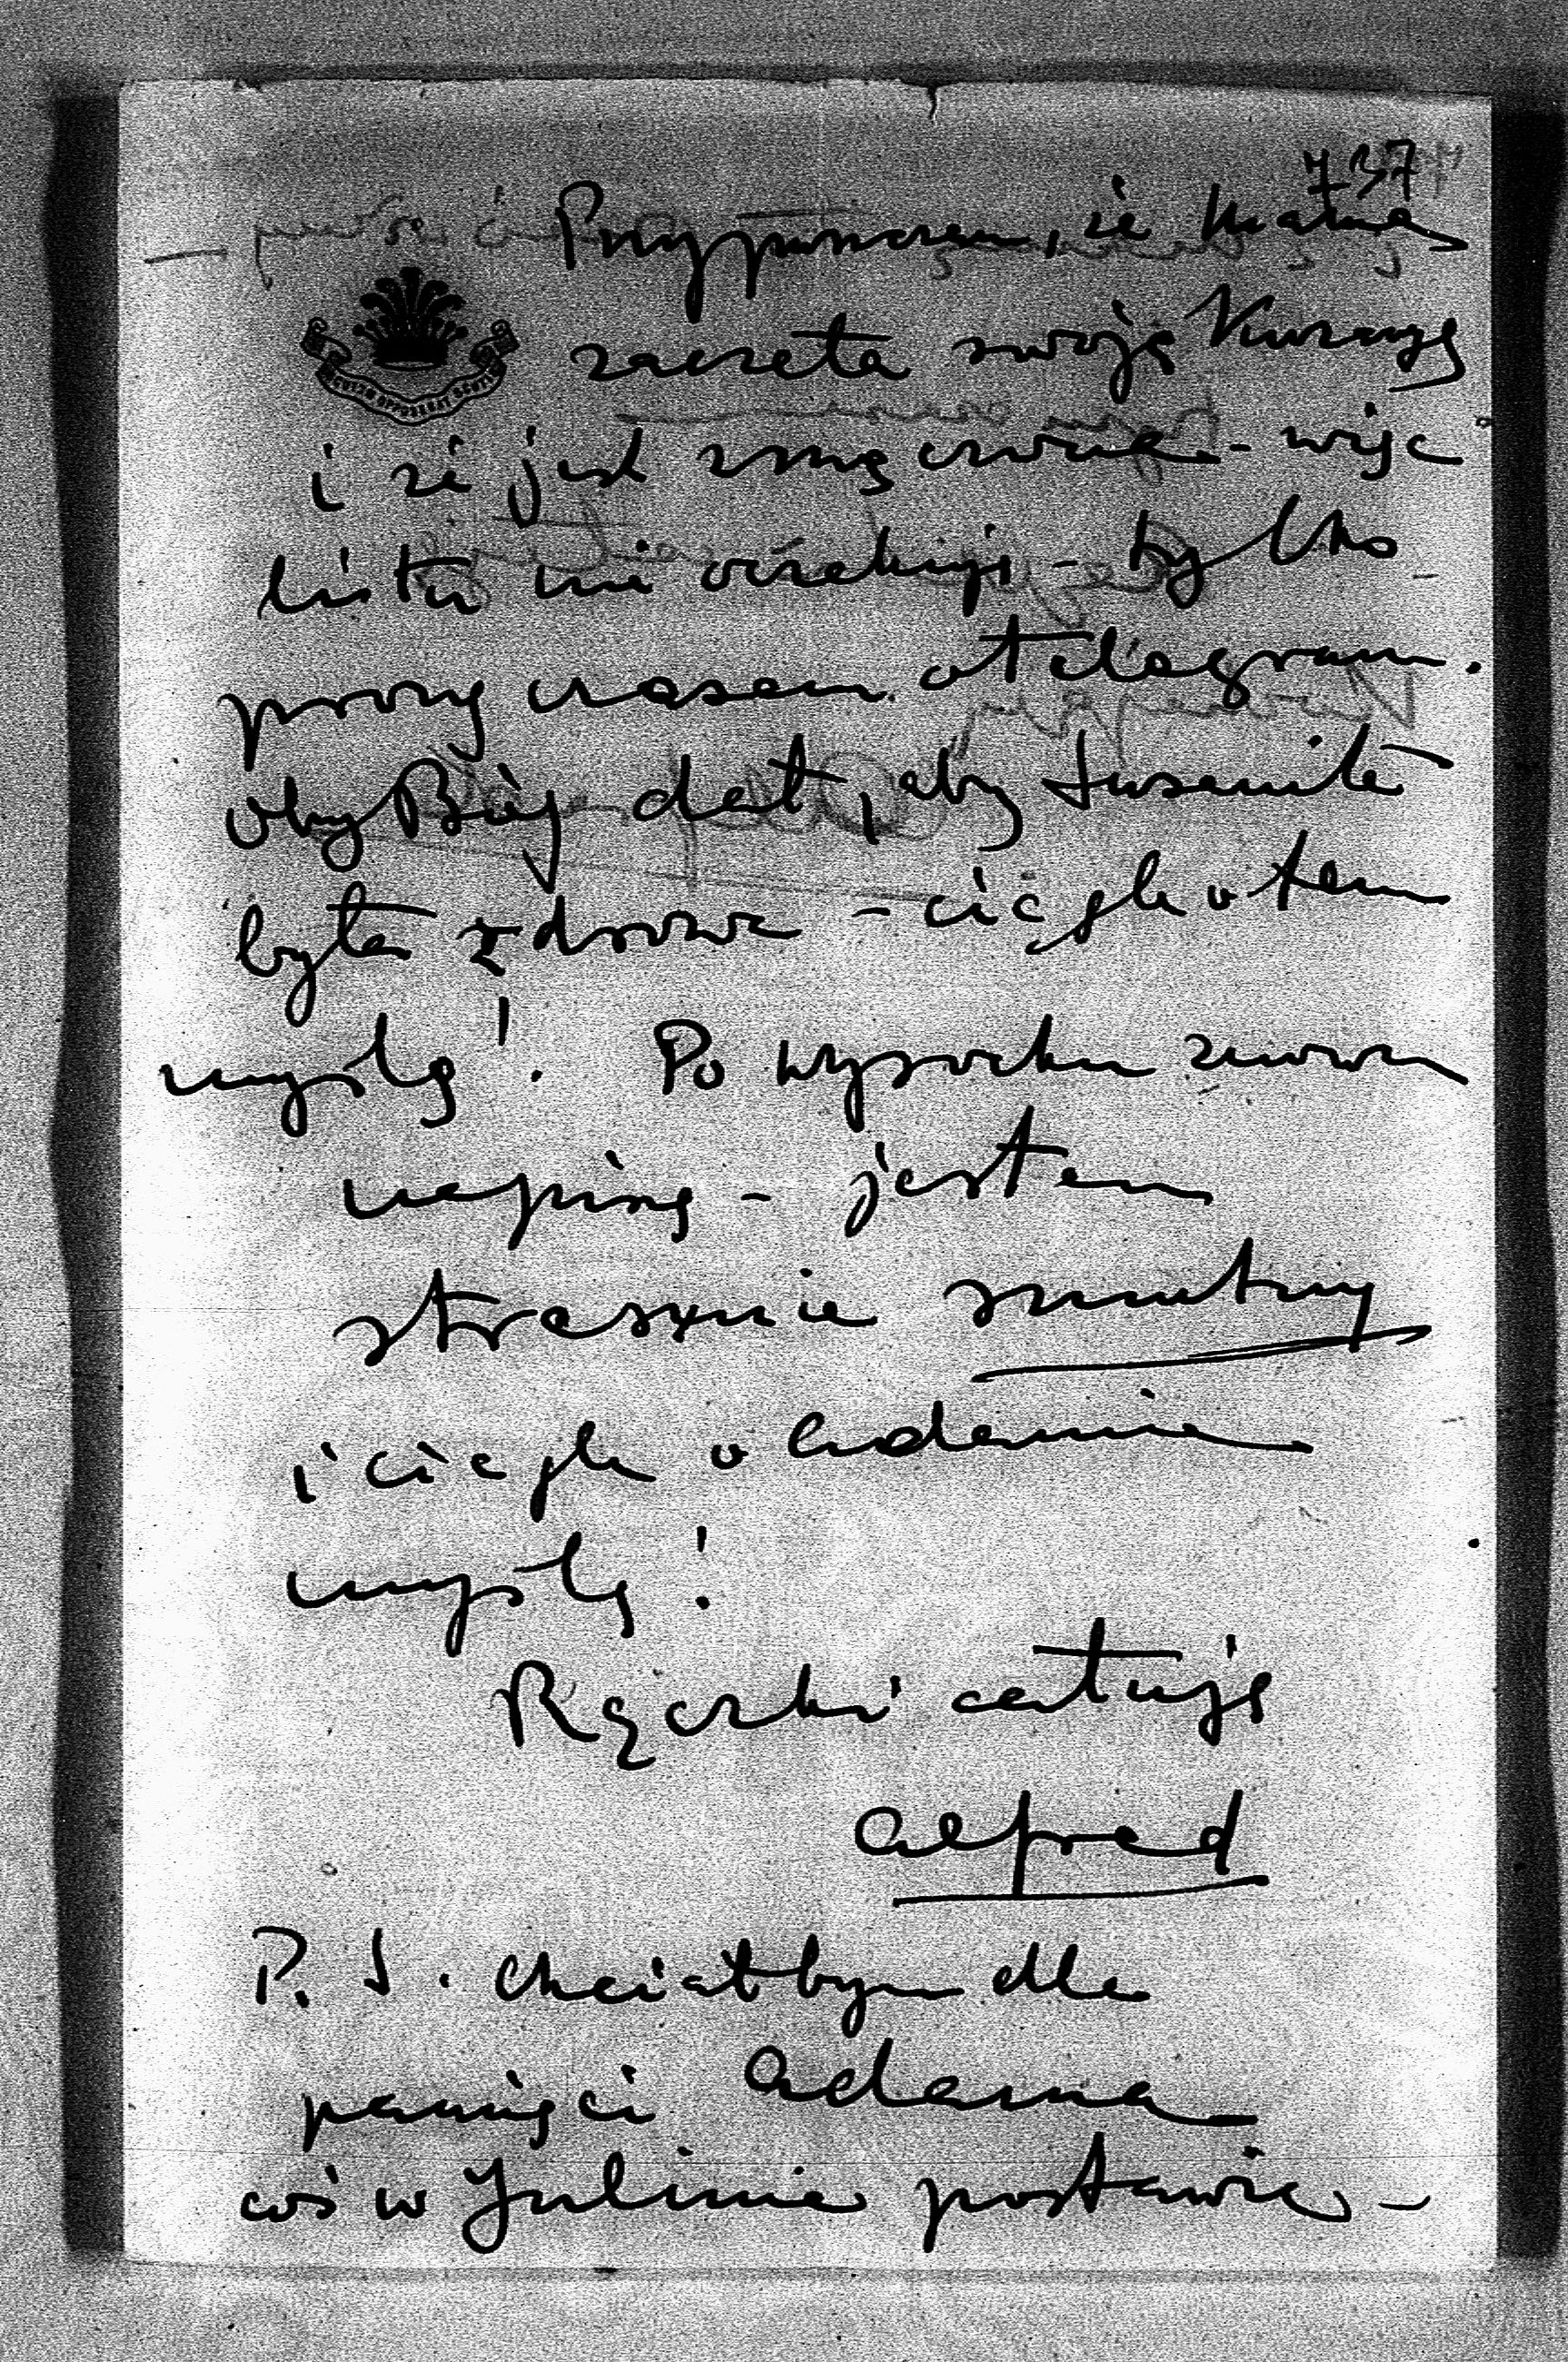 737
Przypuszczam, że Mama
zaczęła swoją Kuracyę
i że jest zmęczona - więc
listu nie oczekuję - tylko
proszę czasem o telegram.
Oby Bóg dał, aby Mama
była zdrowa - ciągle o tem
myślę! Po Wysocku znowu
napiszę - jestem
strasznie smutny
i ciągle o Adamie
myślę!
Rączki całuję
Alfred
P. S. Chciałbym dla
pamięci Adama
coś w Julinie postawić -